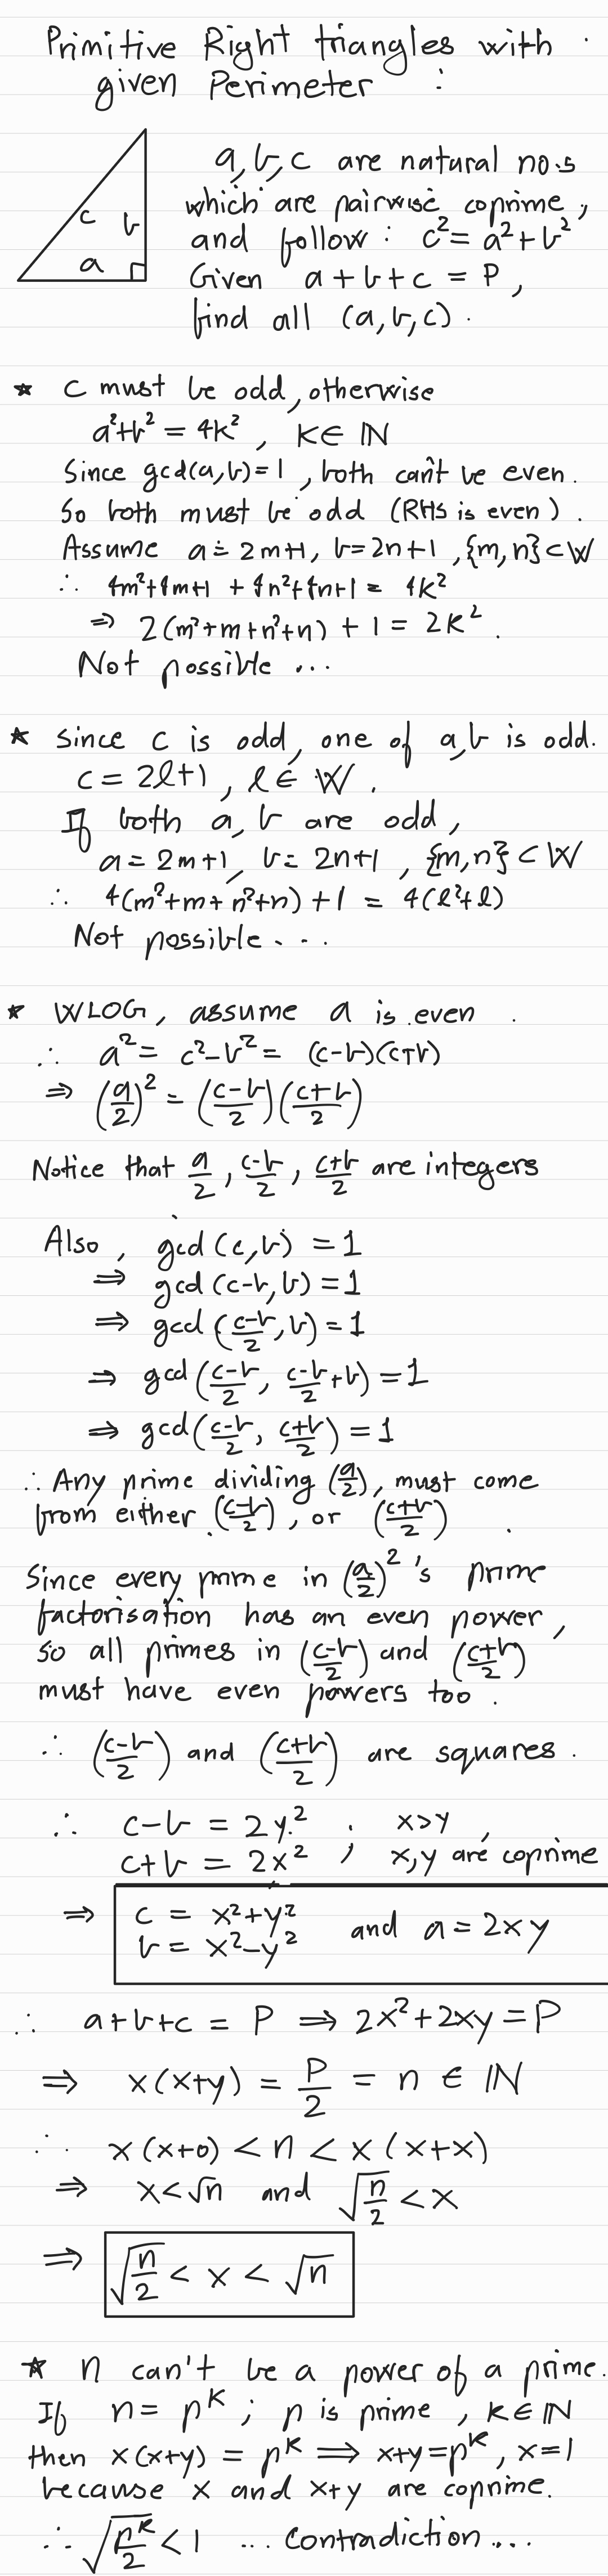 Primitive Right triangles with
given Perimeter :
a, b, c are natural no.s
which are pairwise coprime,
and follow : c² = a² + b²
Given a + b + c = P,
find all (a, b, c).
c
b
a
★ c must be odd, otherwise
a²+b² = 4k² , k ∈ ℕ
Since gcd(a,b)=1 , both can't be even.
So both must be odd (RHS is even).
Assume a = 2m+1, b=2n+1 , {m,n} ⊂ W
∴ 4m²+4m+1 + 4n²+4n+1 = 4k²
⇒ 2(m²+m+n²+n) + 1 = 2k².
Not possible ...
★ Since c is odd, one of a,b is odd.
c = 2l+1 , l ∈ W.
If both a, b are odd,
a = 2m+1, b = 2n+1 , {m,n} ⊂ W
∴ 4(m²+m+n²+n) + 1 = 4(l²+l)
Not possible....
★ WLOG, assume a is even .
∴ a² = c²-b² = (c-b)(c+b)
⇒ (a/2)² = ((c-b)/2)((c+b)/2)
Notice that a/2, (c-b)/2, (c+b)/2 are integers
Also , gcd(c,b) = 1
⇒ gcd(c-b,b) = 1
⇒ gcd((c-b)/2, b) = 1
⇒ gcd((c-b)/2, (c-b)/2 + b) = 1
⇒ gcd((c-b)/2, (c+b)/2) = 1
∴ Any prime dividing (a/2), must come
from either ((c-b)/2) , or ((c+b)/2) .
Since every prime in (a/2)²'s prime
factorisation has an even power,
so all primes in ((c-b)/2) and ((c+b)/2)
must have even powers too .
∴ ((c-b)/2) and ((c+b)/2) are squares .
∴ c-b = 2y² ; x>y ,
c+b = 2x² x,y are coprime
⇒ c = x²+y² and a = 2xy
b = x²-y²
∴ a+b+c = P ⇒ 2x²+2xy = P
⇒ x(x+y) = P/2 = n ∈ ℕ
∴ x(x+0) < n < x(x+x)
⇒ x < √n and √(n/2) < x
⇒ √(n/2) < x < √n
★ n can't be a power of a prime.
If n = p^k ; p is prime , k∈ℕ
then x(x+y) = p^k ⇒ x+y = p^k, x=1
because x and x+y are coprime.
∴ √(p^k/2) < 1 ... Contradiction ...